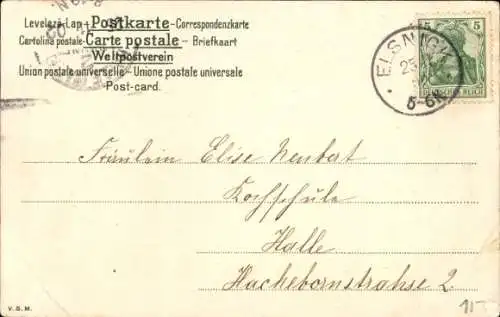 Levelező-Lap - Postkarte - Correspondenzkarte
Cartolina postale - Carte postale - Briefkaart
Weltpostverein
Union postale universelle - Unione postale universale
Post-card.
ELSNIG
25
5-6N
5 5
DEUTSCHES REICH
Fräulein Elise Neubert
Kochschule
Halle
Hackebornstrahse 2
V. G. M.